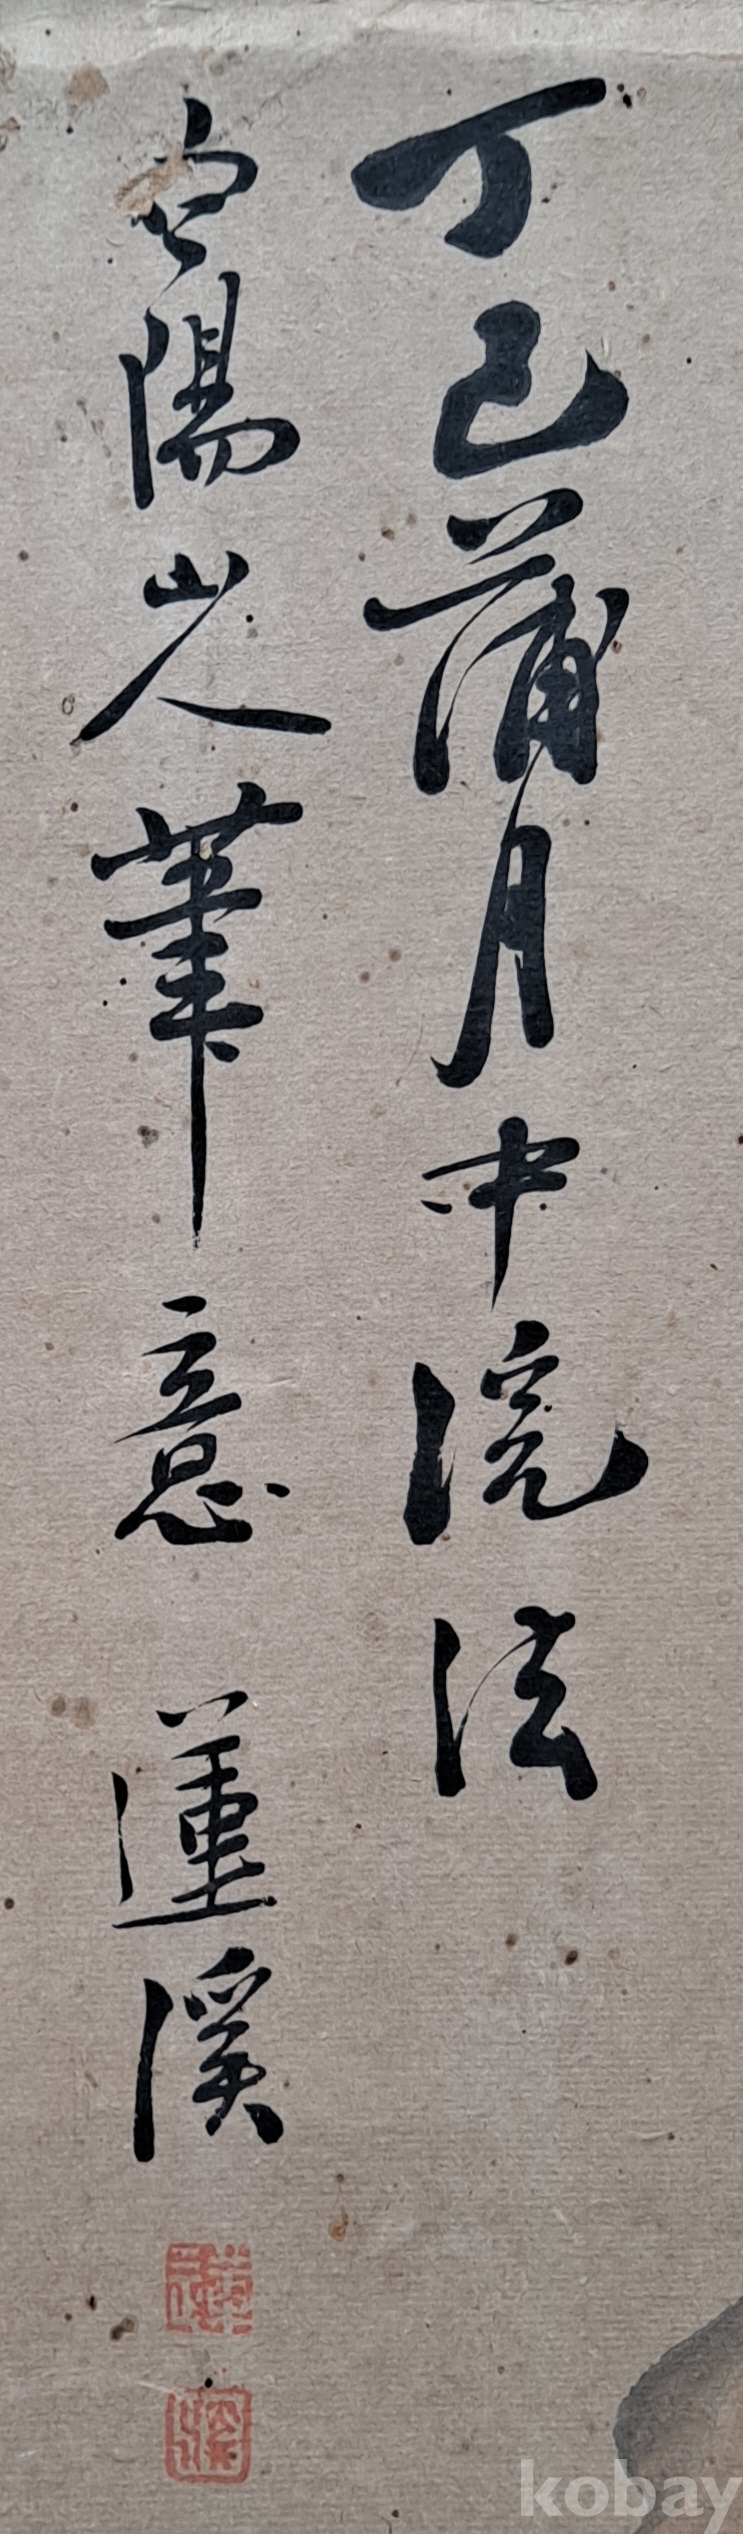 丁巳蒲月中浣法
白陽山人筆意 蓮溪
蓮
溪
kobay